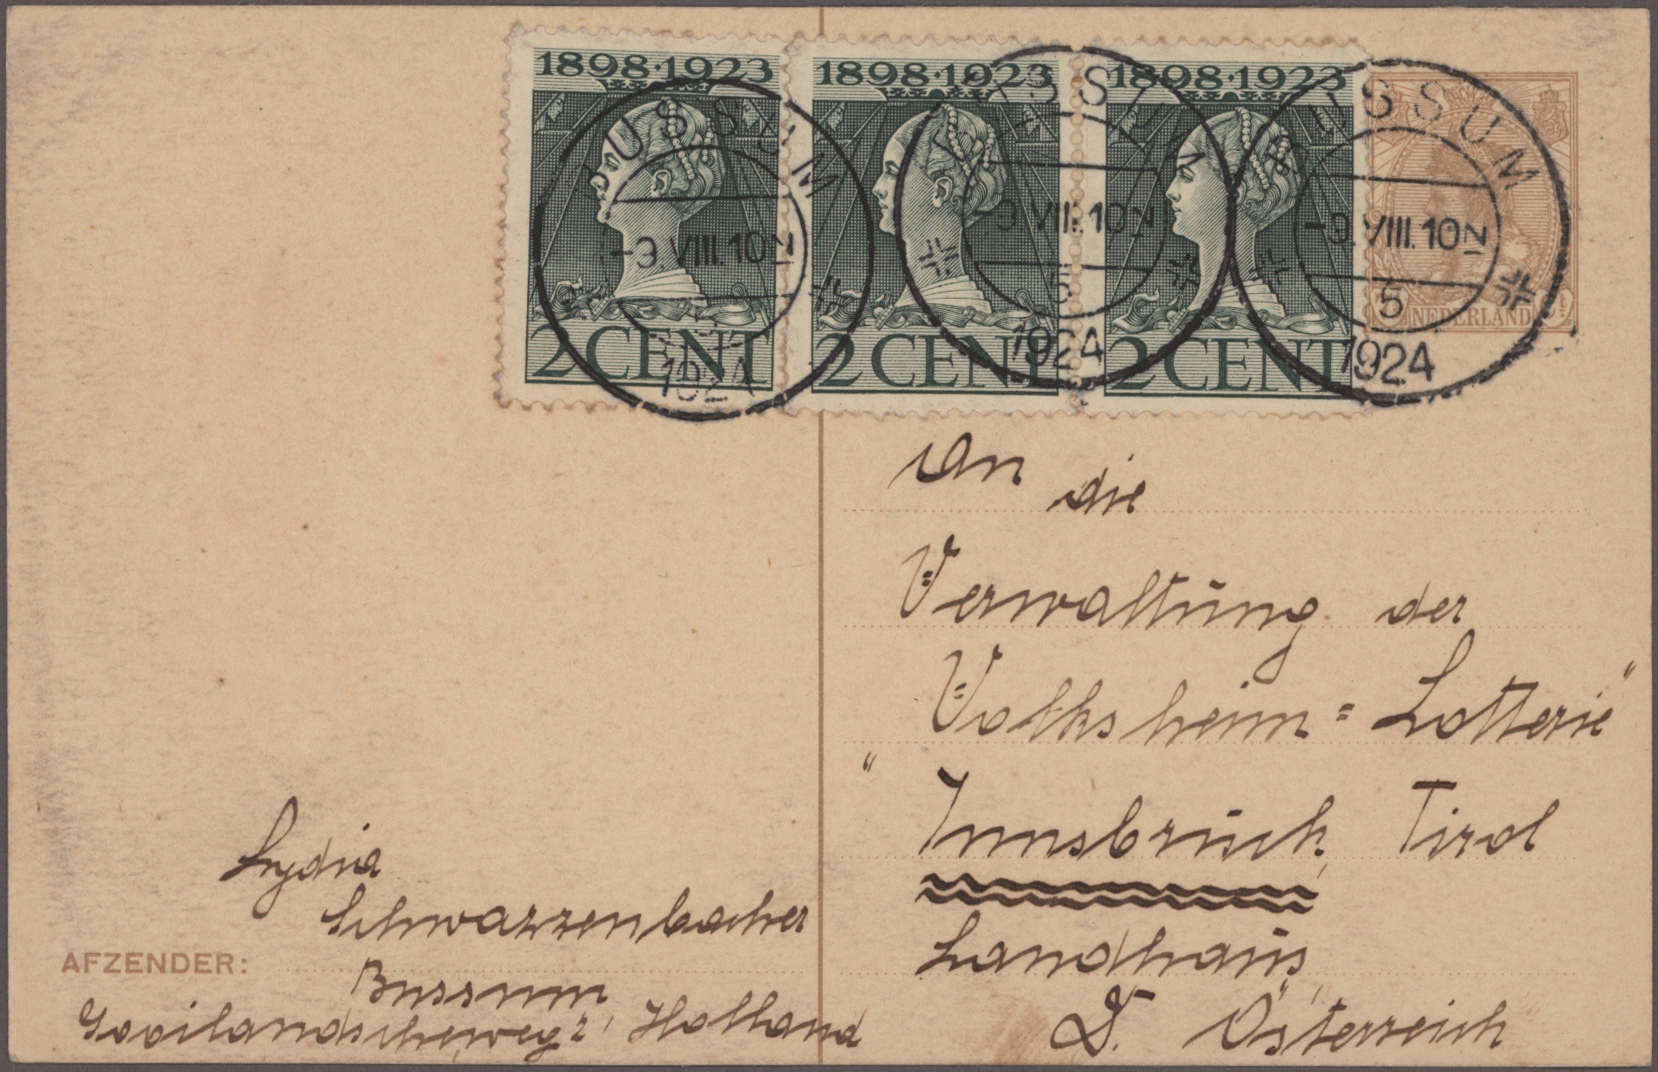 1898·1923 1898·1923 1898·1923
2 CENT 2 CENT 2 CENT
NEDERLAND
BUSSUM
-9.VIII.10N
1924
BUSSUM
-9.VIII.10N
5
1924
BUSSUM
-9.VIII.10N
5
1924
An die
Verwaltung der
„Volksheim=Lotterie“
Innsbruck, Tirol
Landhaus
D. Österreich
Lydia
Schwarzenbacher
AFZENDER: Bussum
Gooilandscheweg 2, Holland